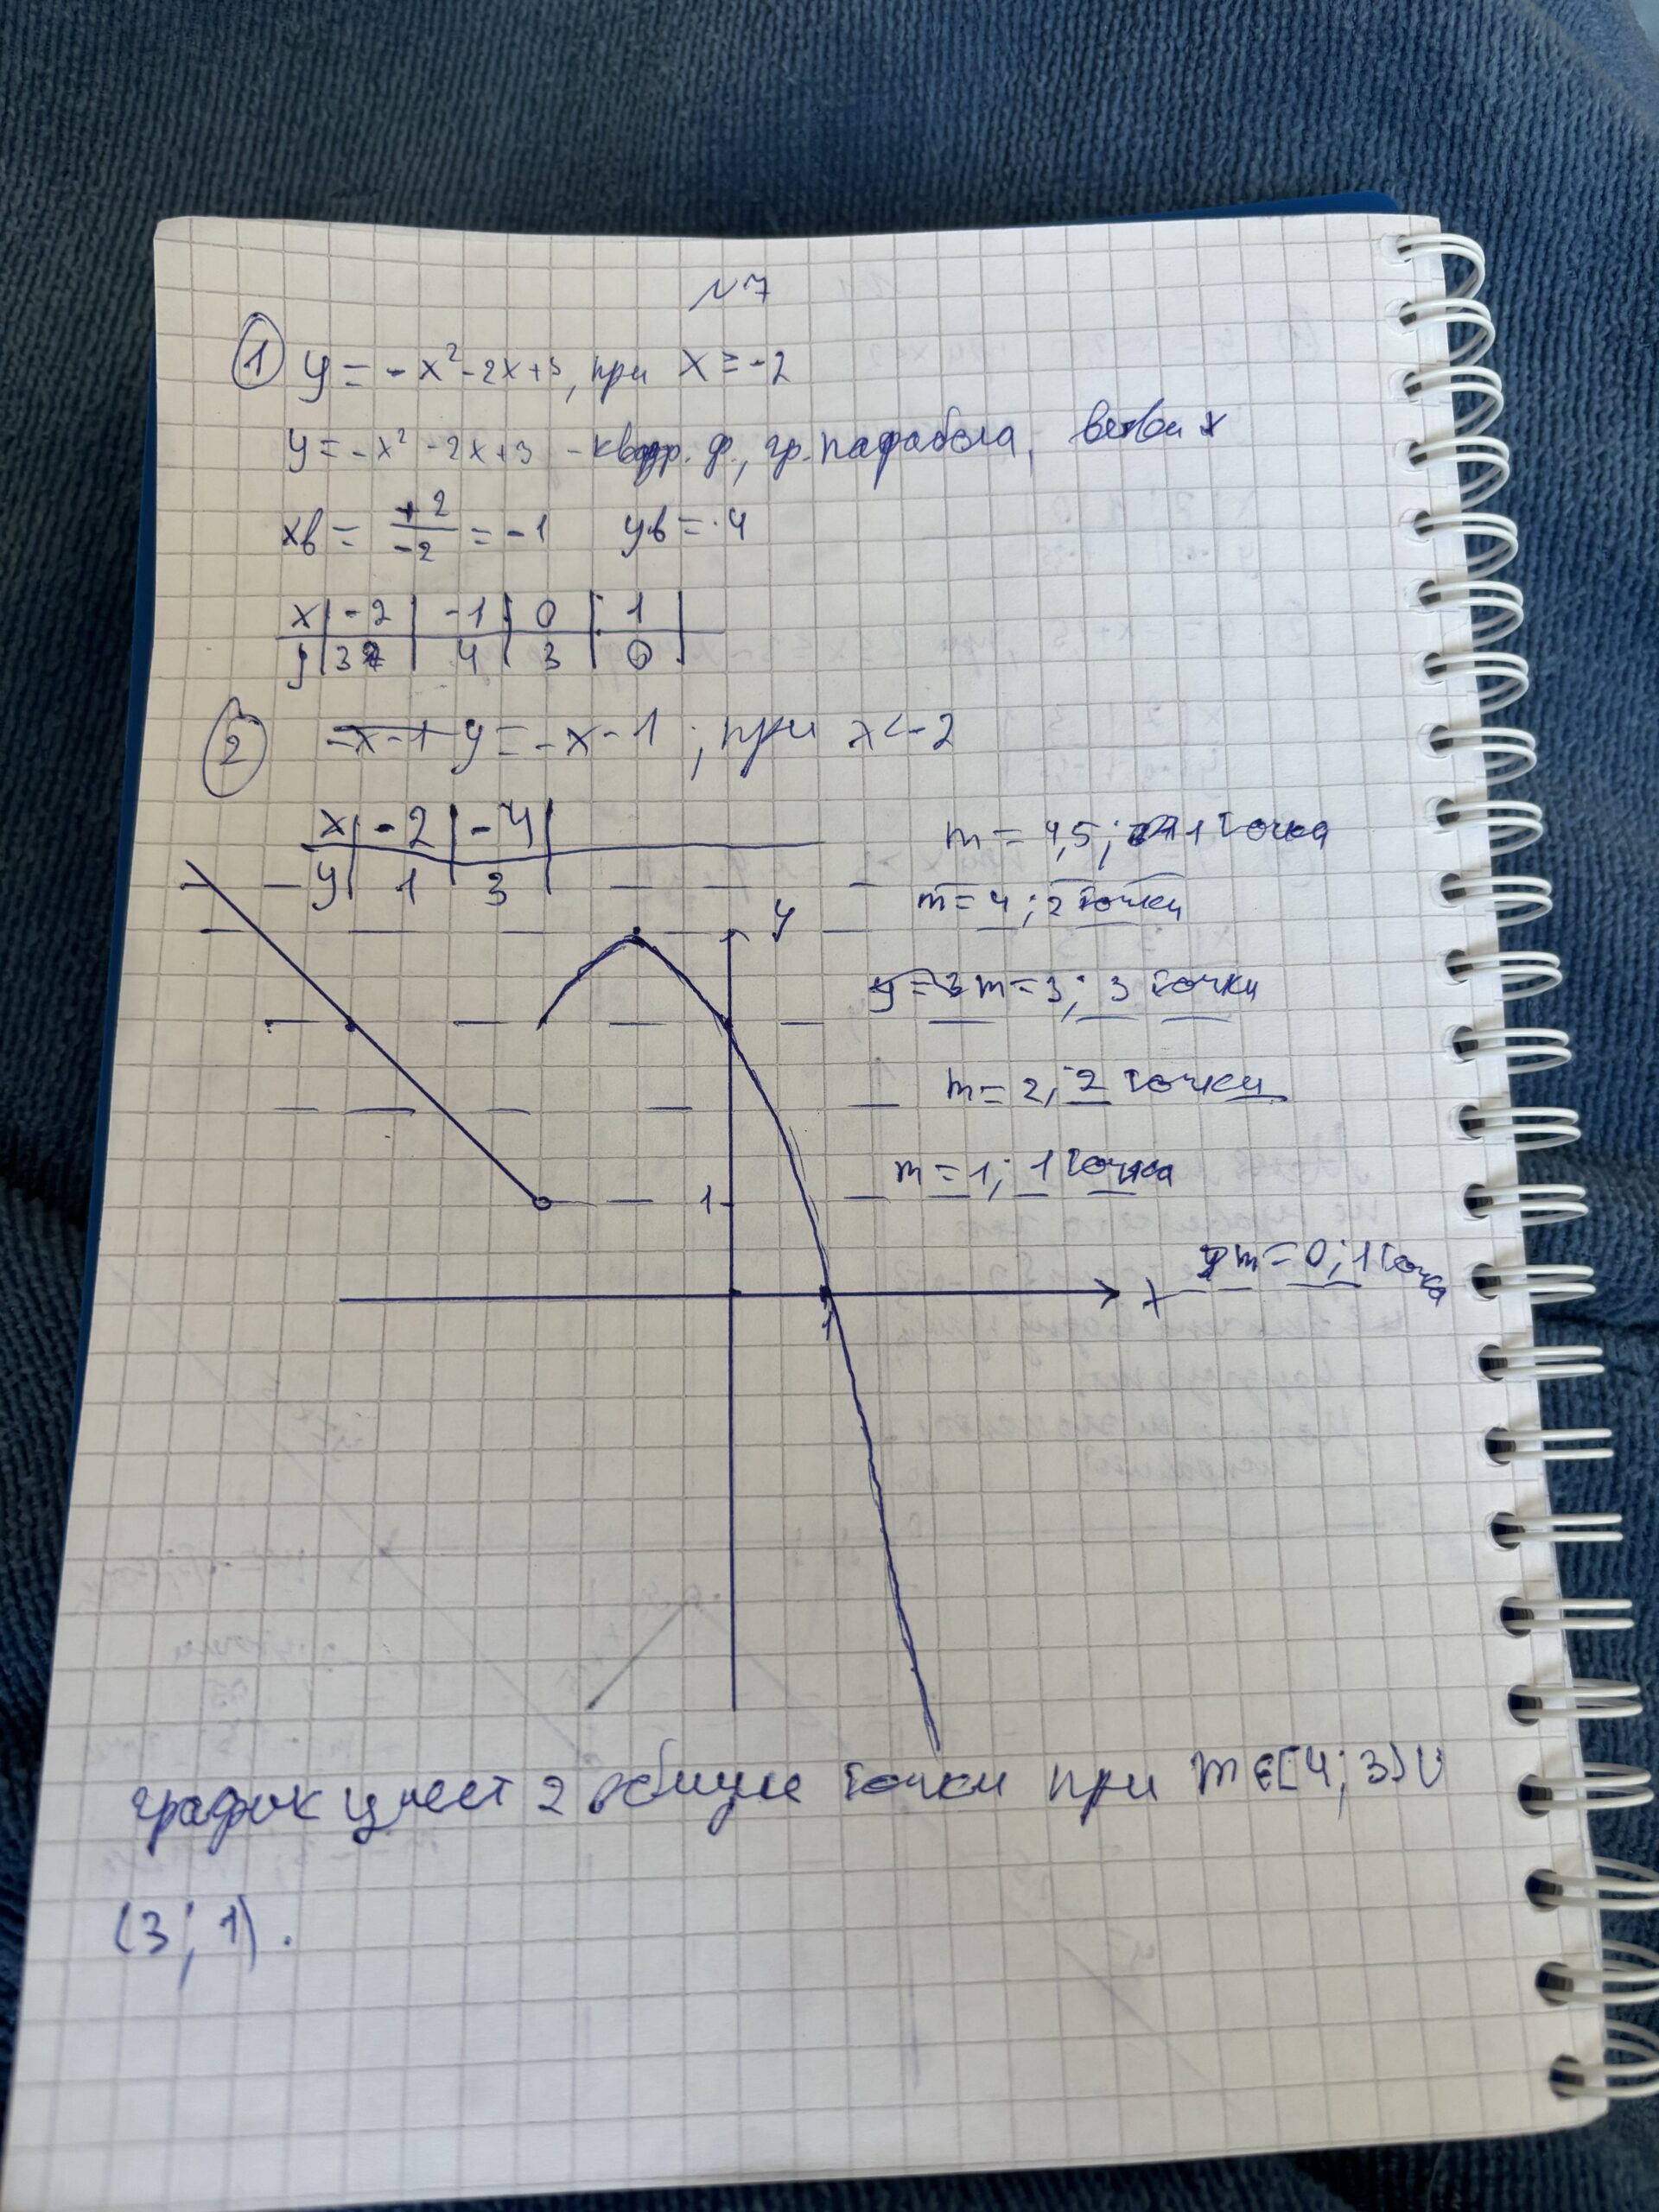 N7
① y = -x² - 2x + 3, при x ≥ -2
y = -x² - 2x + 3 - квадр. ф., гр. парабола, ветви
xв = +2/-2 = -1 yв = 4
x | -2 | -1 | 0 | 1 |
y | 3 | 4 | 3 | 0 |
② y = -x - 1, при x < -2
x | -2 | -4 |
y | 1 | 3 |
m = 4,5; 1 точка
m = 4; 2 точки
y
m = 3; 3 точки
m = 2, 2 точки
1
m = 1; 1 точка
m = 0; 1 точка
x
1
график имеет 2 общие точки при m ∈ [4; 3) ∪
(3; 1).